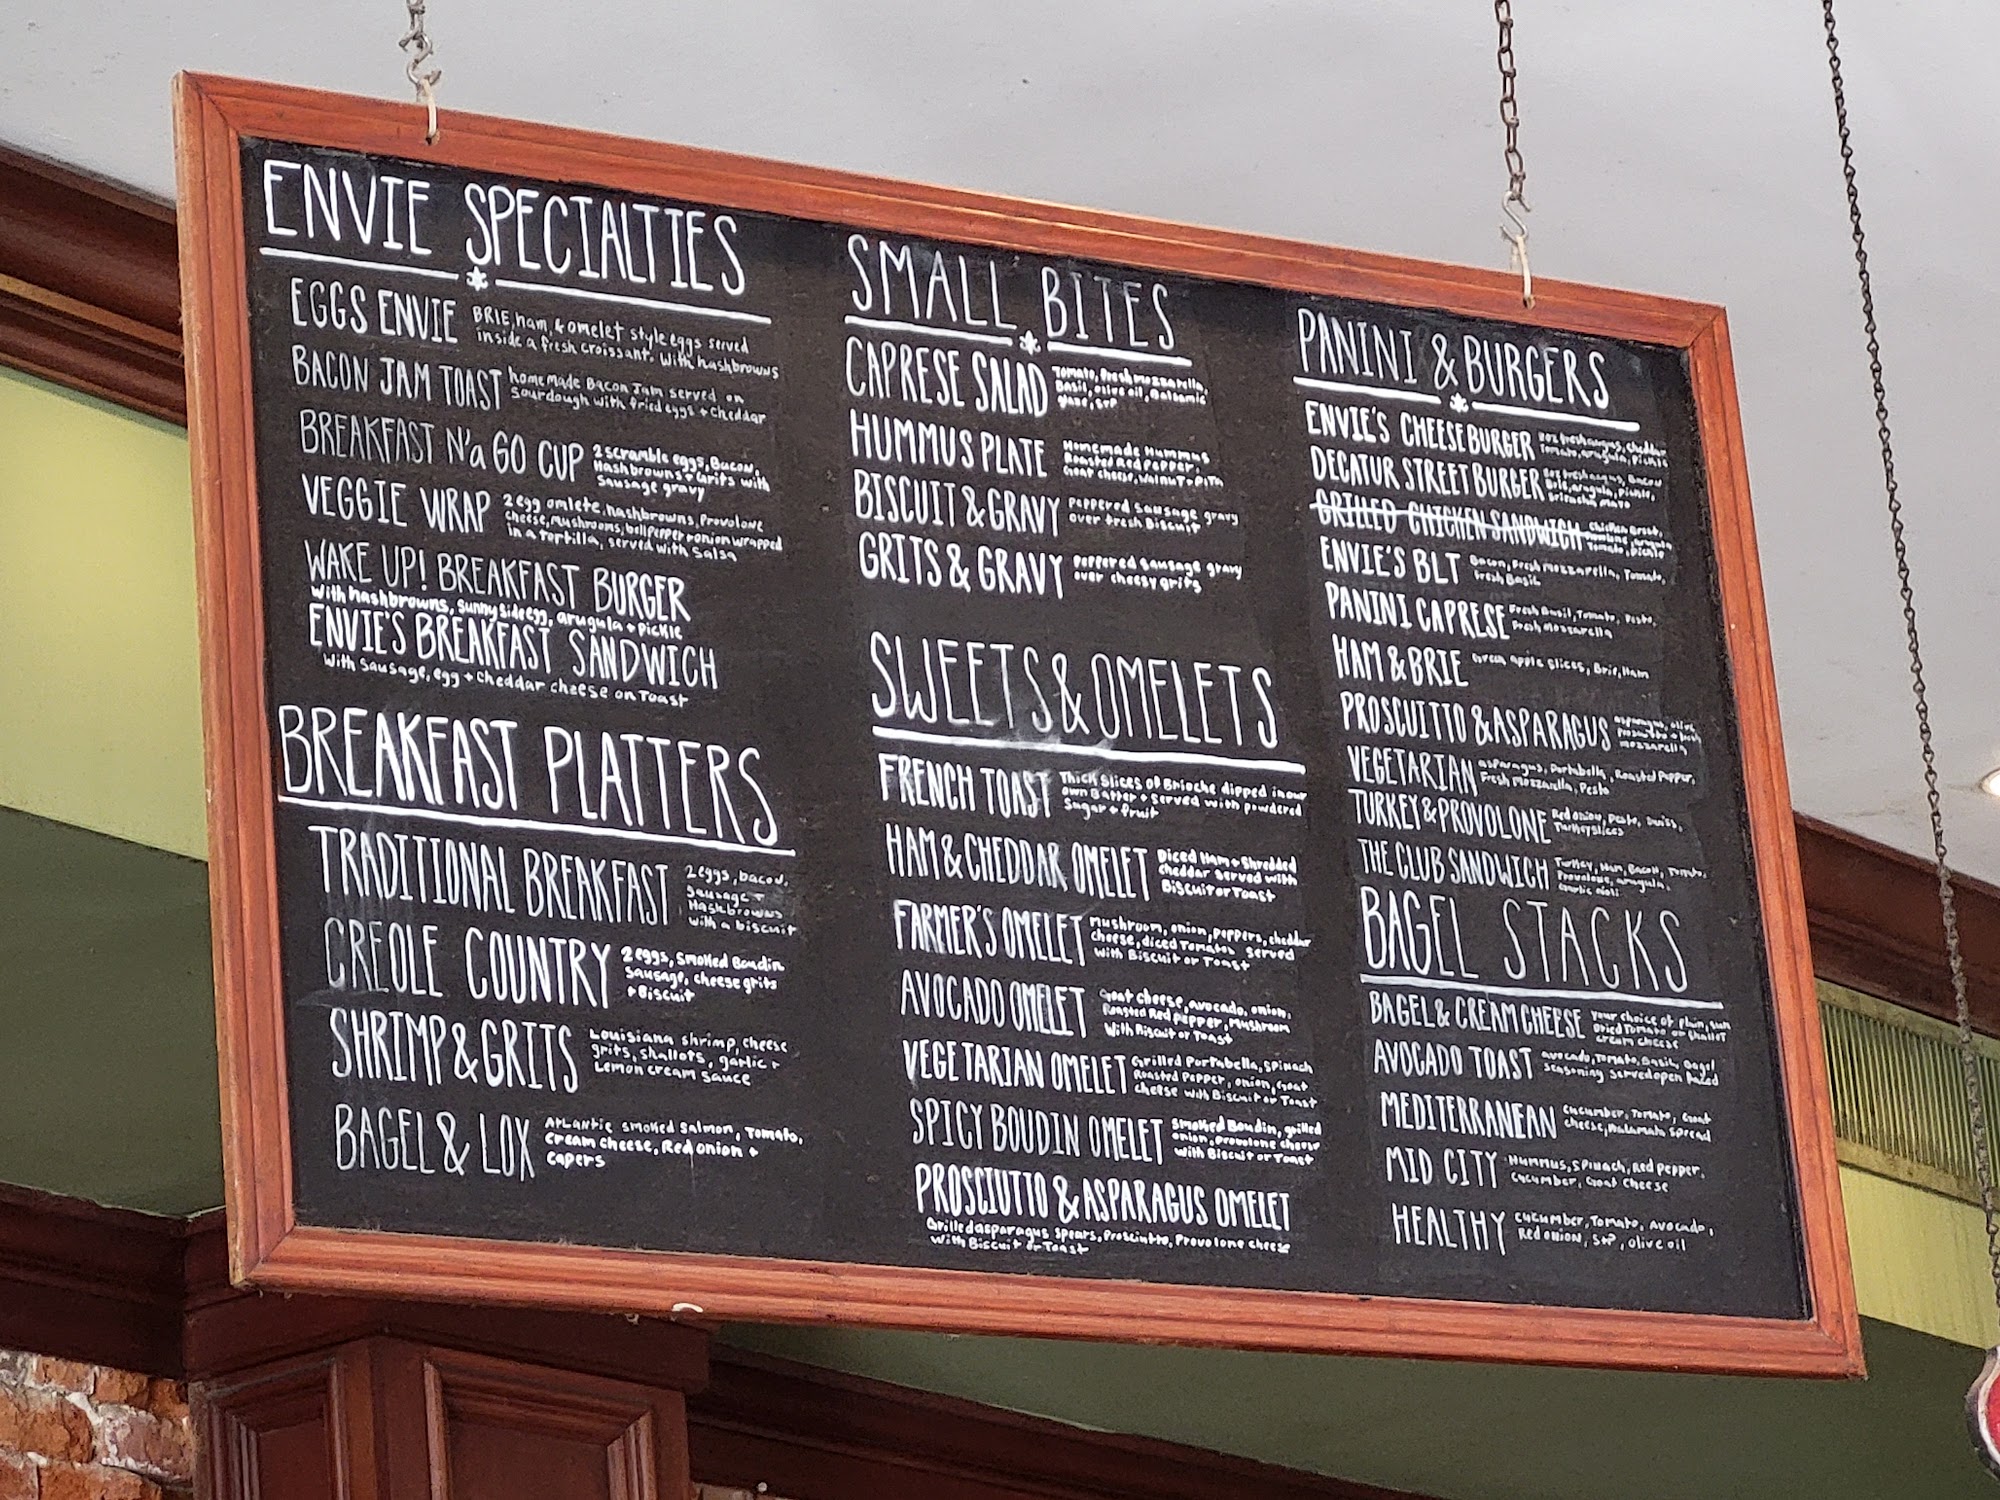 ENVIE SPECIALTIES
EGGS ENVIE BRIE, ham, & omelet style eggs served
inside a fresh croissant. with hashbrowns
BACON JAM TOAST homemade Bacon Jam served on
sourdough with fried eggs + cheddar
BREAKFAST N'a GO CUP 2 scramble eggs, Bacon,
Hashbrowns + Grits with
Sausage gravy
VEGGIE WRAP 2 egg omlete, hashbrowns, Provolone
cheese, mushrooms, bellpepper + onion wrapped
in a tortilla, served with Salsa
WAKE UP! BREAKFAST BURGER
with hashbrowns, sunny side egg, arugula + pickle
ENVIE'S BREAKFAST SANDWICH
with sausage, egg + cheddar cheese on Toast
BREAKFAST PLATTERS
TRADITIONAL BREAKFAST 2 eggs, bacon,
Sausage +
Hashbrowns
with a biscuit
CREOLE COUNTRY 2 eggs, smoked Boudin
Sausage, cheese grits
+ Biscuit
SHRIMP & GRITS Louisiana shrimp, cheese
grits, shallots, garlic +
Lemon cream sauce
BAGEL & LOX Atlantic smoked Salmon, Tomato,
Cream cheese, Red onion +
capers
SMALL BITES
CAPRESE SALAD Tomato, fresh mozzarella,
Basil, olive oil, Balsamic
S+P
HUMMUS PLATE Homemade Hummus
Roasted Red Pepper,
Goat cheese, walnut + Pita
BISCUIT & GRAVY Peppered sausage gravy
over fresh Biscuit
GRITS & GRAVY peppered sausage gravy
over cheesy grits
SWEETS & OMELETS
FRENCH TOAST Thick slices of Brioche dipped in our
own Batter + served with powdered
Sugar + fruit
HAM & CHEDDAR OMELET Diced Ham + Shredded
cheddar served with
Biscuit or Toast
FARMER'S OMELET Mushroom, onion, peppers, cheddar
cheese, diced Tomato, served
with Biscuit or Toast
AVOCADO OMELET Goat cheese, avocado, onion,
Roasted Red pepper, Mushroom
With Biscuit or Toast
VEGETARIAN OMELET Grilled Portabella, spinach
Roasted Pepper, onion, Goat
cheese with Biscuit or Toast
SPICY BOUDIN OMELET Smoked Boudin, grilled
onion, provolone cheese
with Biscuit or Toast
PROSCIUTTO & ASPARAGUS OMELET
Grilled asparagus spears, Prosciutto, Provolone cheese
with Biscuit or Toast
PANINI & BURGERS
ENVIE'S CHEESEBURGER 8oz fresh angus, cheddar
Tomato, arugula, Pickle
DECATUR STREET BURGER 8oz fresh angus, Bacon
Brie, arugula, pickle,
Sriracha mayo
GRILLED CHICKEN SANDWICH Chicken Breast,
Tomato, pickle
ENVIE'S BLT Bacon, Fresh mozzarella, Tomato,
Fresh Basil
PANINI CAPRESE Fresh Basil, Tomato, Pesto,
Fresh Mozzarella
HAM & BRIE Green apple slices, Brie, Ham
PROSCUITTO & ASPARAGUS asparagus, olive
mozzarella
VEGETARIAN asparagus, Portabella, Roasted Pepper,
Fresh mozzarella, Pesto
TURKEY & PROVOLONE Red onion, Pesto, Swiss,
Turkey slices
THE CLUB SANDWICH Turkey, Ham, Bacon, Tomato,
Provolone, arugula,
Garlic aioli
BAGEL STACKS
BAGEL & CREAM CHEESE your choice of Plain, Sun
Dried Tomato or Shallot
cream cheese
AVOCADO TOAST avocado, Tomato, Basil, Bagel
Seasoning Served open faced
MEDITERRANEAN Cucumber, Tomato, Goat
cheese, Kalamata spread
MID CITY Hummus, Spinach, Red pepper,
Cucumber, Goat cheese
HEALTHY Cucumber, Tomato, avocado,
Red onion, S+P, olive oil